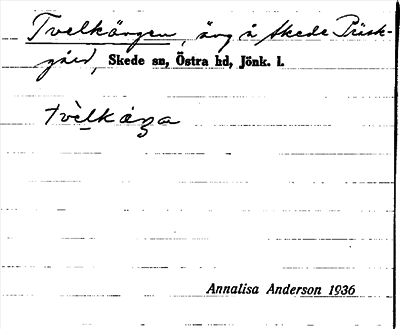 Tvelkängen, äng å Skede Präst-
gård, Skede sn, Östra hd, Jönk. l.
tvèlkäŋa
Annalisa Anderson 1936